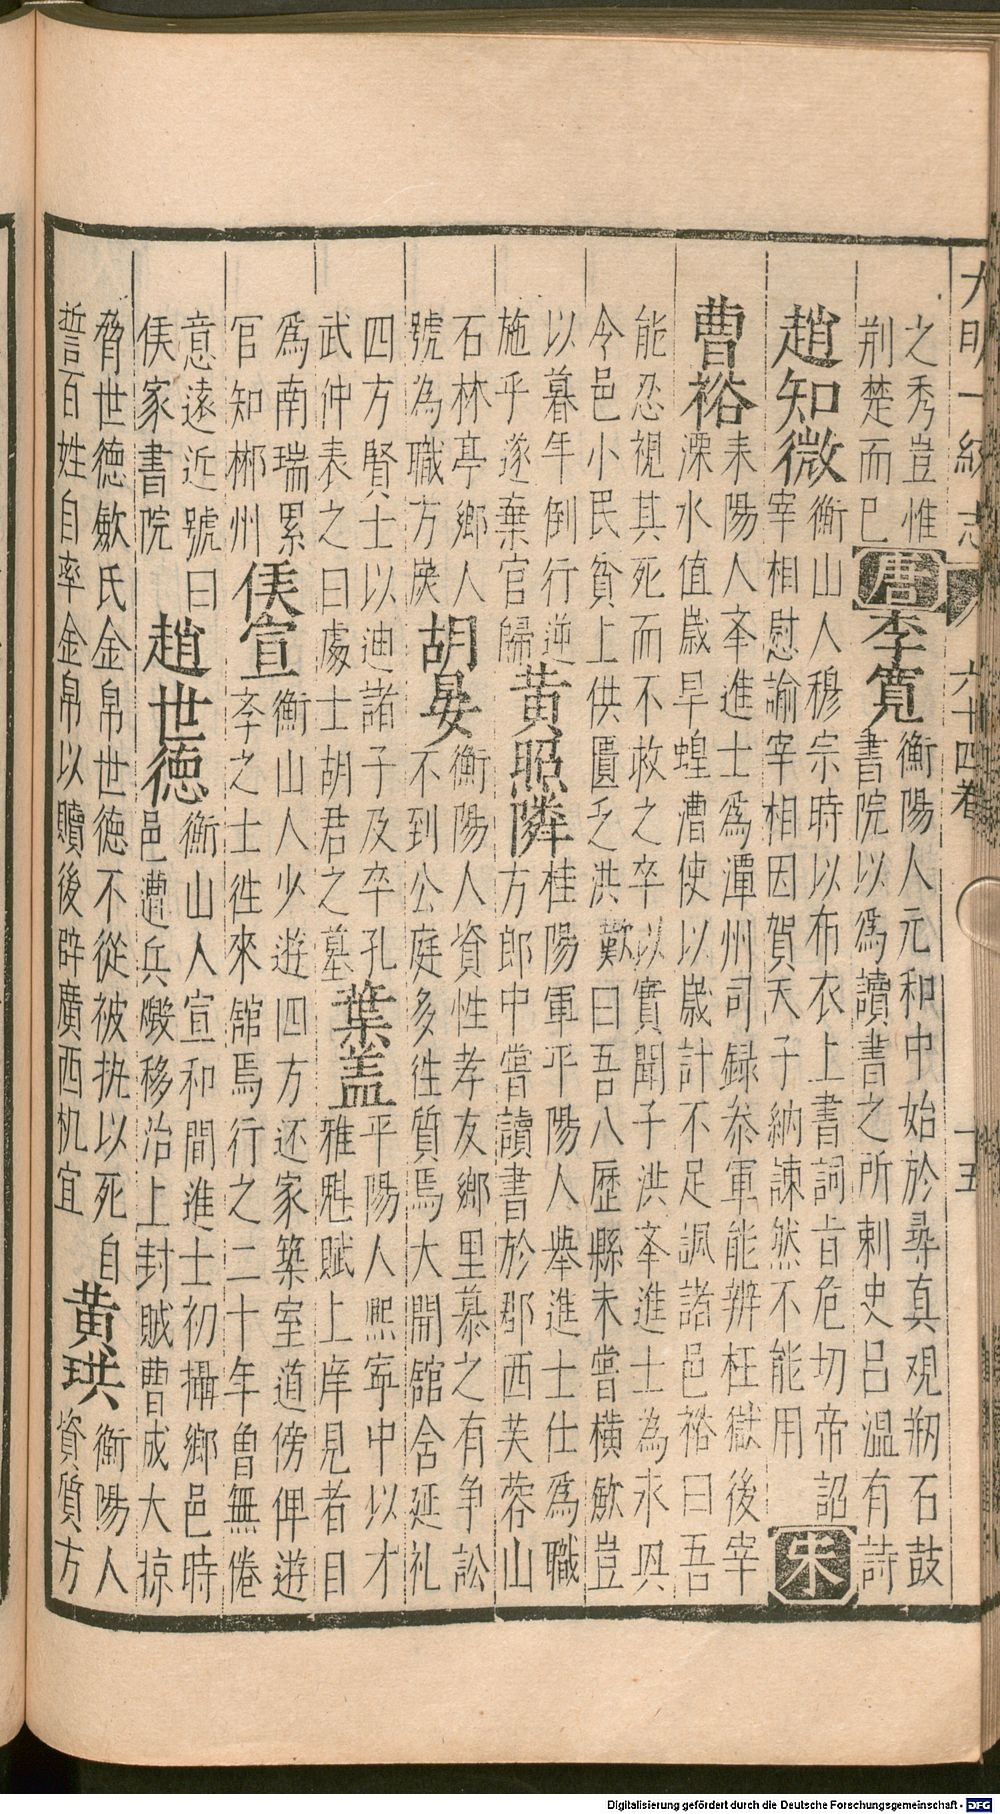 大明一統志 六十四卷 十五
之秀豈惟
荆楚而已
唐
李寬
衡陽人元和中始於尋真观剏石鼓
書院以爲讀書之所刺史吕溫有詩
趙知微
衡山人穆宗時以布衣上書詞旨危切帝詔
宰相慰諭宰相因賀天子納諫然不能用
宋
曹裕
耒陽人㪯進士爲潭州司録叅軍能辨枉獄後宰
溧水值歲旱蝗漕使以歲計不足諷諸邑裕曰吾
能忍視其死而不救之卒以實聞子洪㪯進士為永興
令邑小民貧上供匱乏洪歎曰吾八歷縣未嘗橫歛豈
以暮年倒行逆
施乎遂棄官歸
黄照隣
桂陽軍平陽人舉進士仕爲職
方郎中嘗讀書於郡西芙蓉山
石林亭鄉人
號為職方灘
胡晏
衡陽人資性孝友鄉里慕之有争訟
不到公庭多徃質焉大開舘舍延礼
四方賢士以迪諸子及卒孔
武仲表之曰處士胡君之墓
葉蓋
平陽人熙寕中以才
雅魁賦上庠見者目
爲南瑞累
官知郴州
侯宣
衡山人少遊四方还家築室道傍俾遊
㪯之士徃來舘焉行之二十年曾無倦
意遠近號曰
侯家書院
趙世德
衡山人宣和間進士初攝鄉邑時
邑遭兵燬移治上封賊曹成大掠
脅世德歛民金帛世德不從被执以死自
誓百姓自率金帛以贖後辟廣西机宜
黄珙
衡陽人
資質方
Digitalisierung gefördert durch die Deutsche Forschungsgemeinschaft - DFG